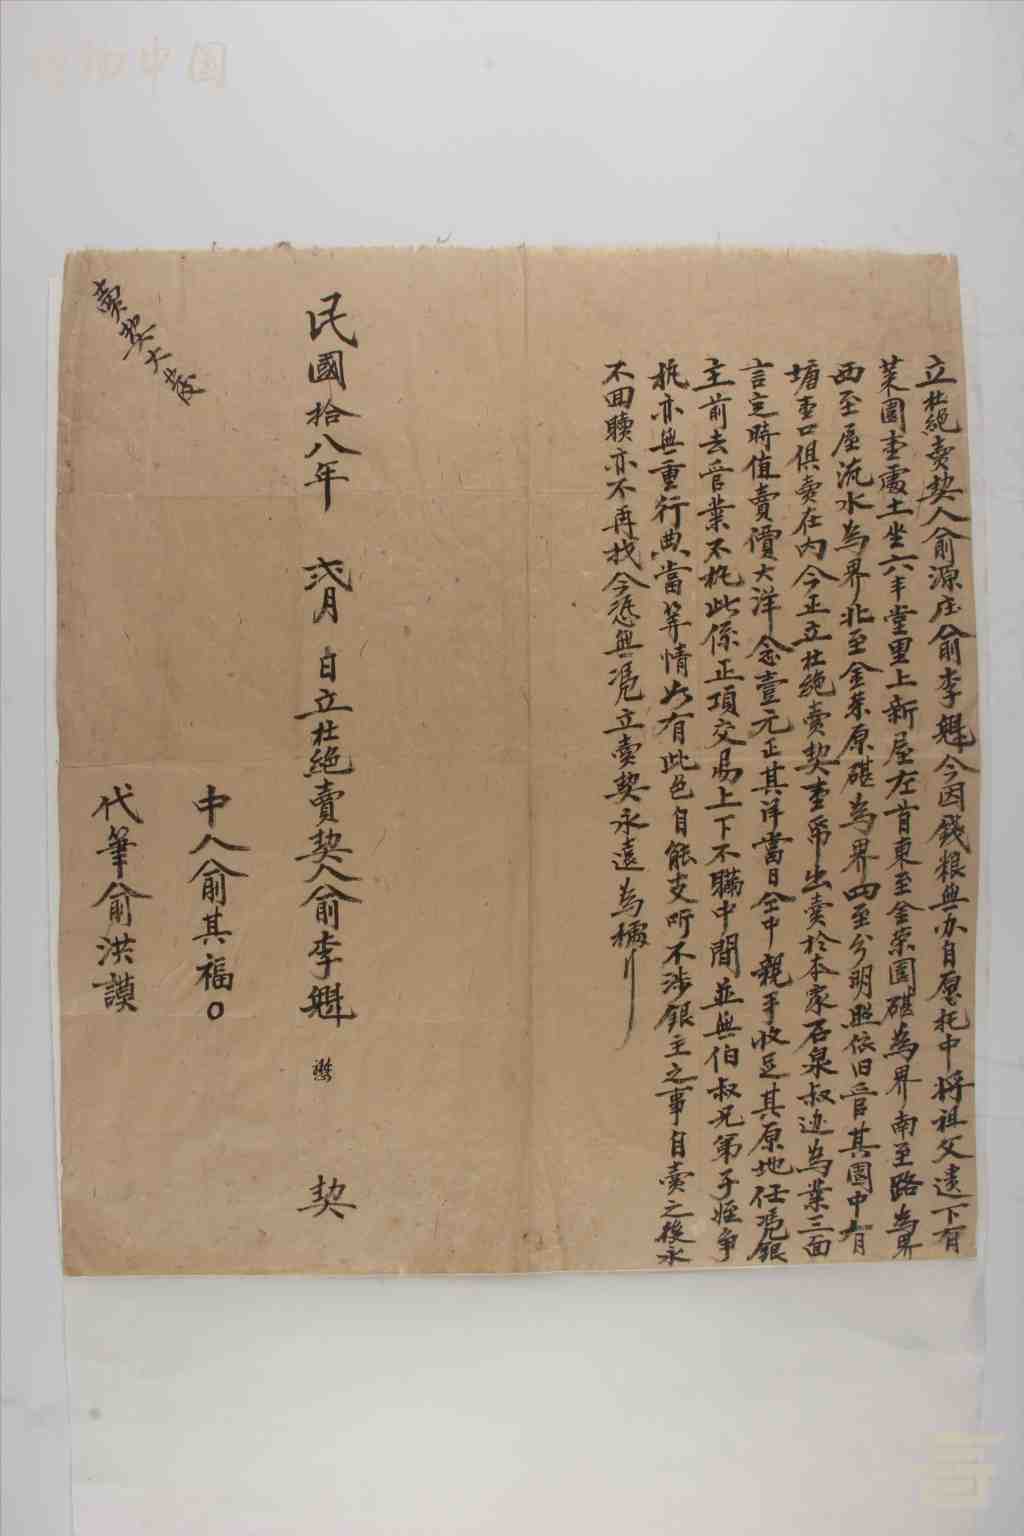 立杜絕賣契人俞源庄俞李魁今因錢粮無办自愿托中將祖父遺下有
菜園壹處土坐六丰堂里上新屋左首東至金菜園磡為界南至路為界
西至屋流水為界北至金菜原磡為界四至分明照依旧管其園中有
塘壹口俱賣在内今正立杜絕賣契壹帋出賣於本家石泉叔边為業三面
言定時值賣價大洋念壹元正其洋當日仝中親手收足其原地任凴銀
主前去管業不執此係正項交易上下不瞞中間並無伯叔兄弟子姪爭
執亦無重行典當等情如有此色自能支听不涉銀主之事自賣之後永
不回贖亦不再找今恐無凴立賣契永遠為據
民國拾八年 弍月 日立杜絕賣契人俞李魁 契
中人俞其福
代筆俞洪謨
賣契大發
中国